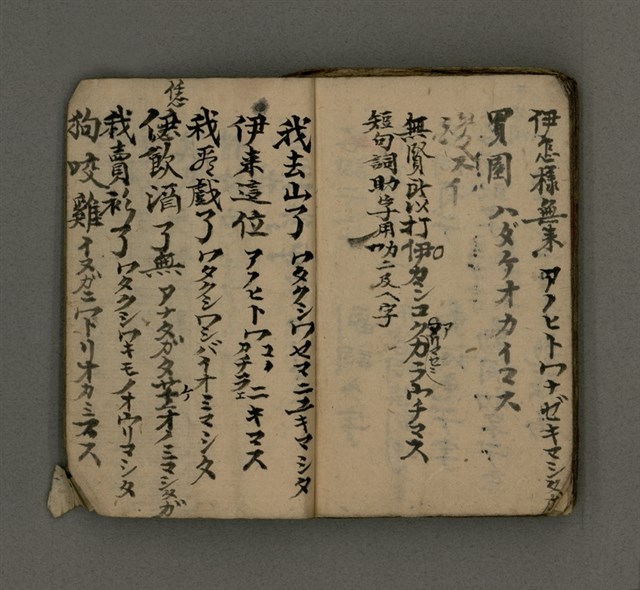 伊怎樣無来 アノヒトワナゼキマシタカ
買園 ハダケオカイマス
無賢所以打伊 カシコクナカラウチマス
短句詞助字用叻ニ及ヘ字
我去山了 ワタクシワヤマニユキマシタ
伊来這位 アノヒトワココニキマス
カチラエ
我看戯了 ワタクシワシバイオミマシタ
恁飲酒了無 アナタガタサケオノミマシタカ
我賣衫了 ワタクシワキモノオウリマシタ
狗咬雞 イヌガニワトリオカミマス